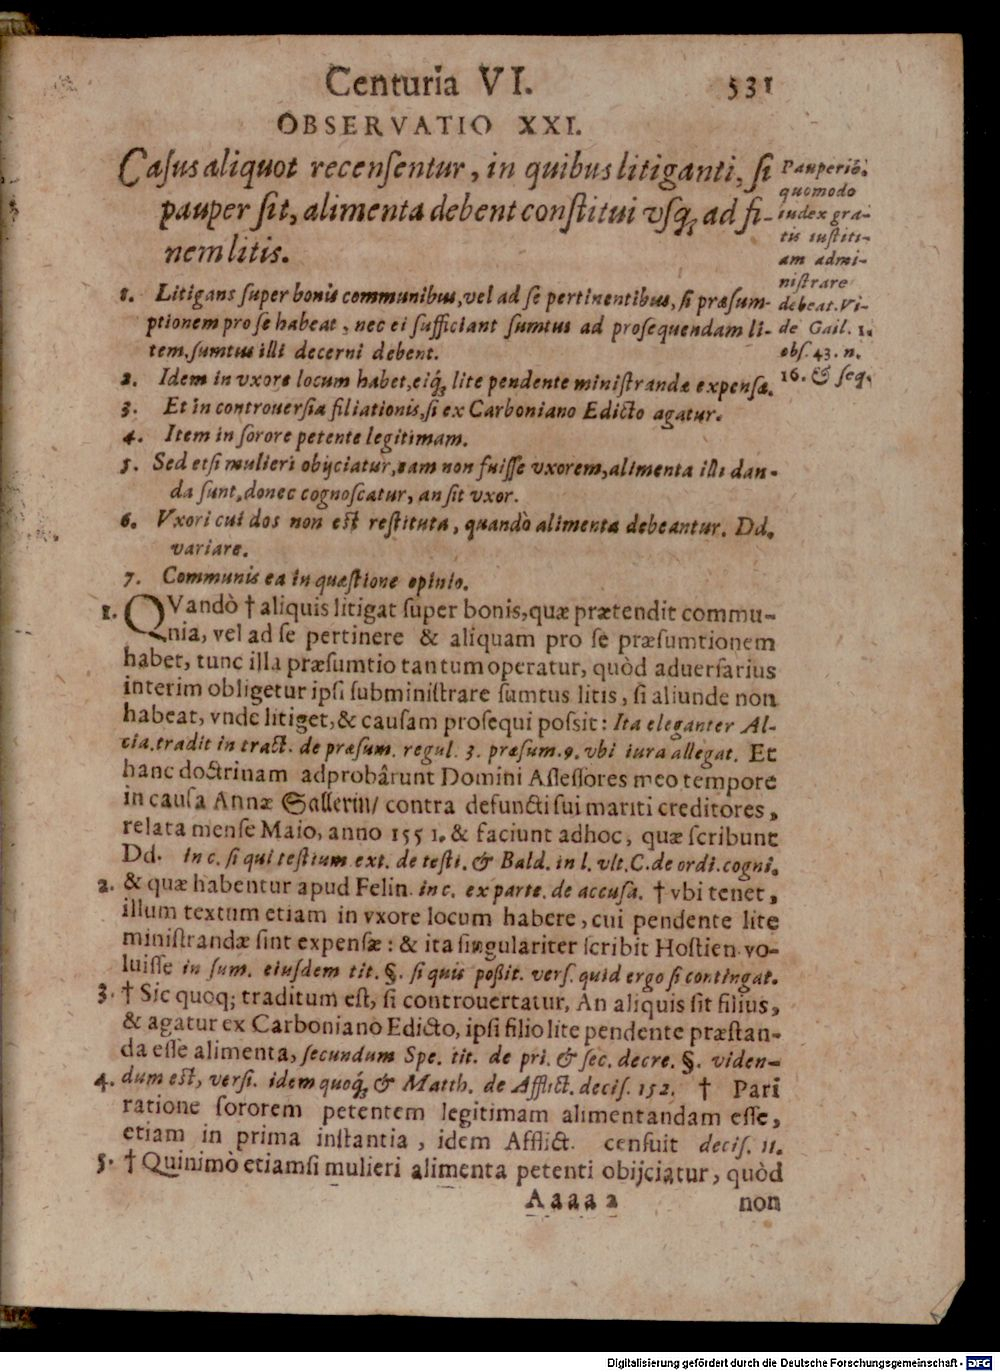 Centuria VI. 531
OBSERVATIO XXI.
Casus aliquot recensentur, in quibus litiganti, si
pauper sit, alimenta debent constitui vsq; ad fi-
nem litis.
Pauperib.
quomodo
iudex gra-
tis iustiti-
am admi-
nistrare
debeat. Vi-
de Gail. 1.
obs. 43. n.
16. & seq.
1. Litigans super bonis communibus, vel ad se pertinentibus, si præsum-
ptionem pro se habeat, nec ei sufficiant sumtus ad prosequendam li-
tem, sumtus illi decerni debent.
2. Idem in vxore locum habet, eiq; lite pendente ministrandæ expensæ.
3. Et in controuersia filiationis, si ex Carboniano Edicto agatur.
4. Item in sorore petente legitimam.
5. Sed etsi mulieri obijciatur, eam non fuisse vxorem, alimenta illi dan-
da sunt, donec cognoscatur, an sit vxor.
6. Vxori cui dos non est restituta, quandò alimenta debeantur. Dd.
variare.
7. Communis ea in quæstione opinio.
1. QVandò † aliquis litigat super bonis, quæ prætendit commu-
nia, vel ad se pertinere & aliquam pro se præsumtionem
habet, tunc illa præsumtio tantum operatur, quòd aduersarius
interim obligetur ipsi subministrare sumtus litis, si aliunde non
habeat, vnde litiget, & causam prosequi possit: Ita eleganter Al-
cia. tradit in tract. de præsum. regul. 3. præsum. 9. vbi iura allegat. Et
hanc doctrinam adprobârunt Domini Assessores meo tempore
in causa Annæ Sallerin/ contra defuncti sui mariti creditores,
relata mense Maio, anno 1551. & faciunt adhoc, quæ scribunt
Dd. in c. si qui testium ext. de testi. & Bald. in l. vlt. C. de ordi. cogni.
2. & quæ habentur apud Felin. in c. ex parte. de accusa. † vbi tenet,
illum textum etiam in vxore locum habere, cui pendente lite
ministrandæ sint expensæ: & ita singulariter scribit Hostien. vo-
luisse in sum. eiusdem tit. §. si quis possit. vers. quid ergo si contingat.
3. † Sic quoq; traditum est, si controuertatur, An aliquis sit filius,
& agatur ex Carboniano Edicto, ipsi filio lite pendente præstan-
da esse alimenta, secundum Spe. tit. de pri. & sec. decre. §. viden-
4. dum est, versi. idem quoq; & Matth. de Afflict. decis. 152. † Pari
ratione sororem petentem legitimam alimentandam esse,
etiam in prima instantia, idem Afflict. censuit decis. 11.
5. † Quinimò etiamsi mulieri alimenta petenti obijciatur, quòd
Aaaa 2 non
Digitalisierung gefördert durch die Deutsche Forschungsgemeinschaft - DFG